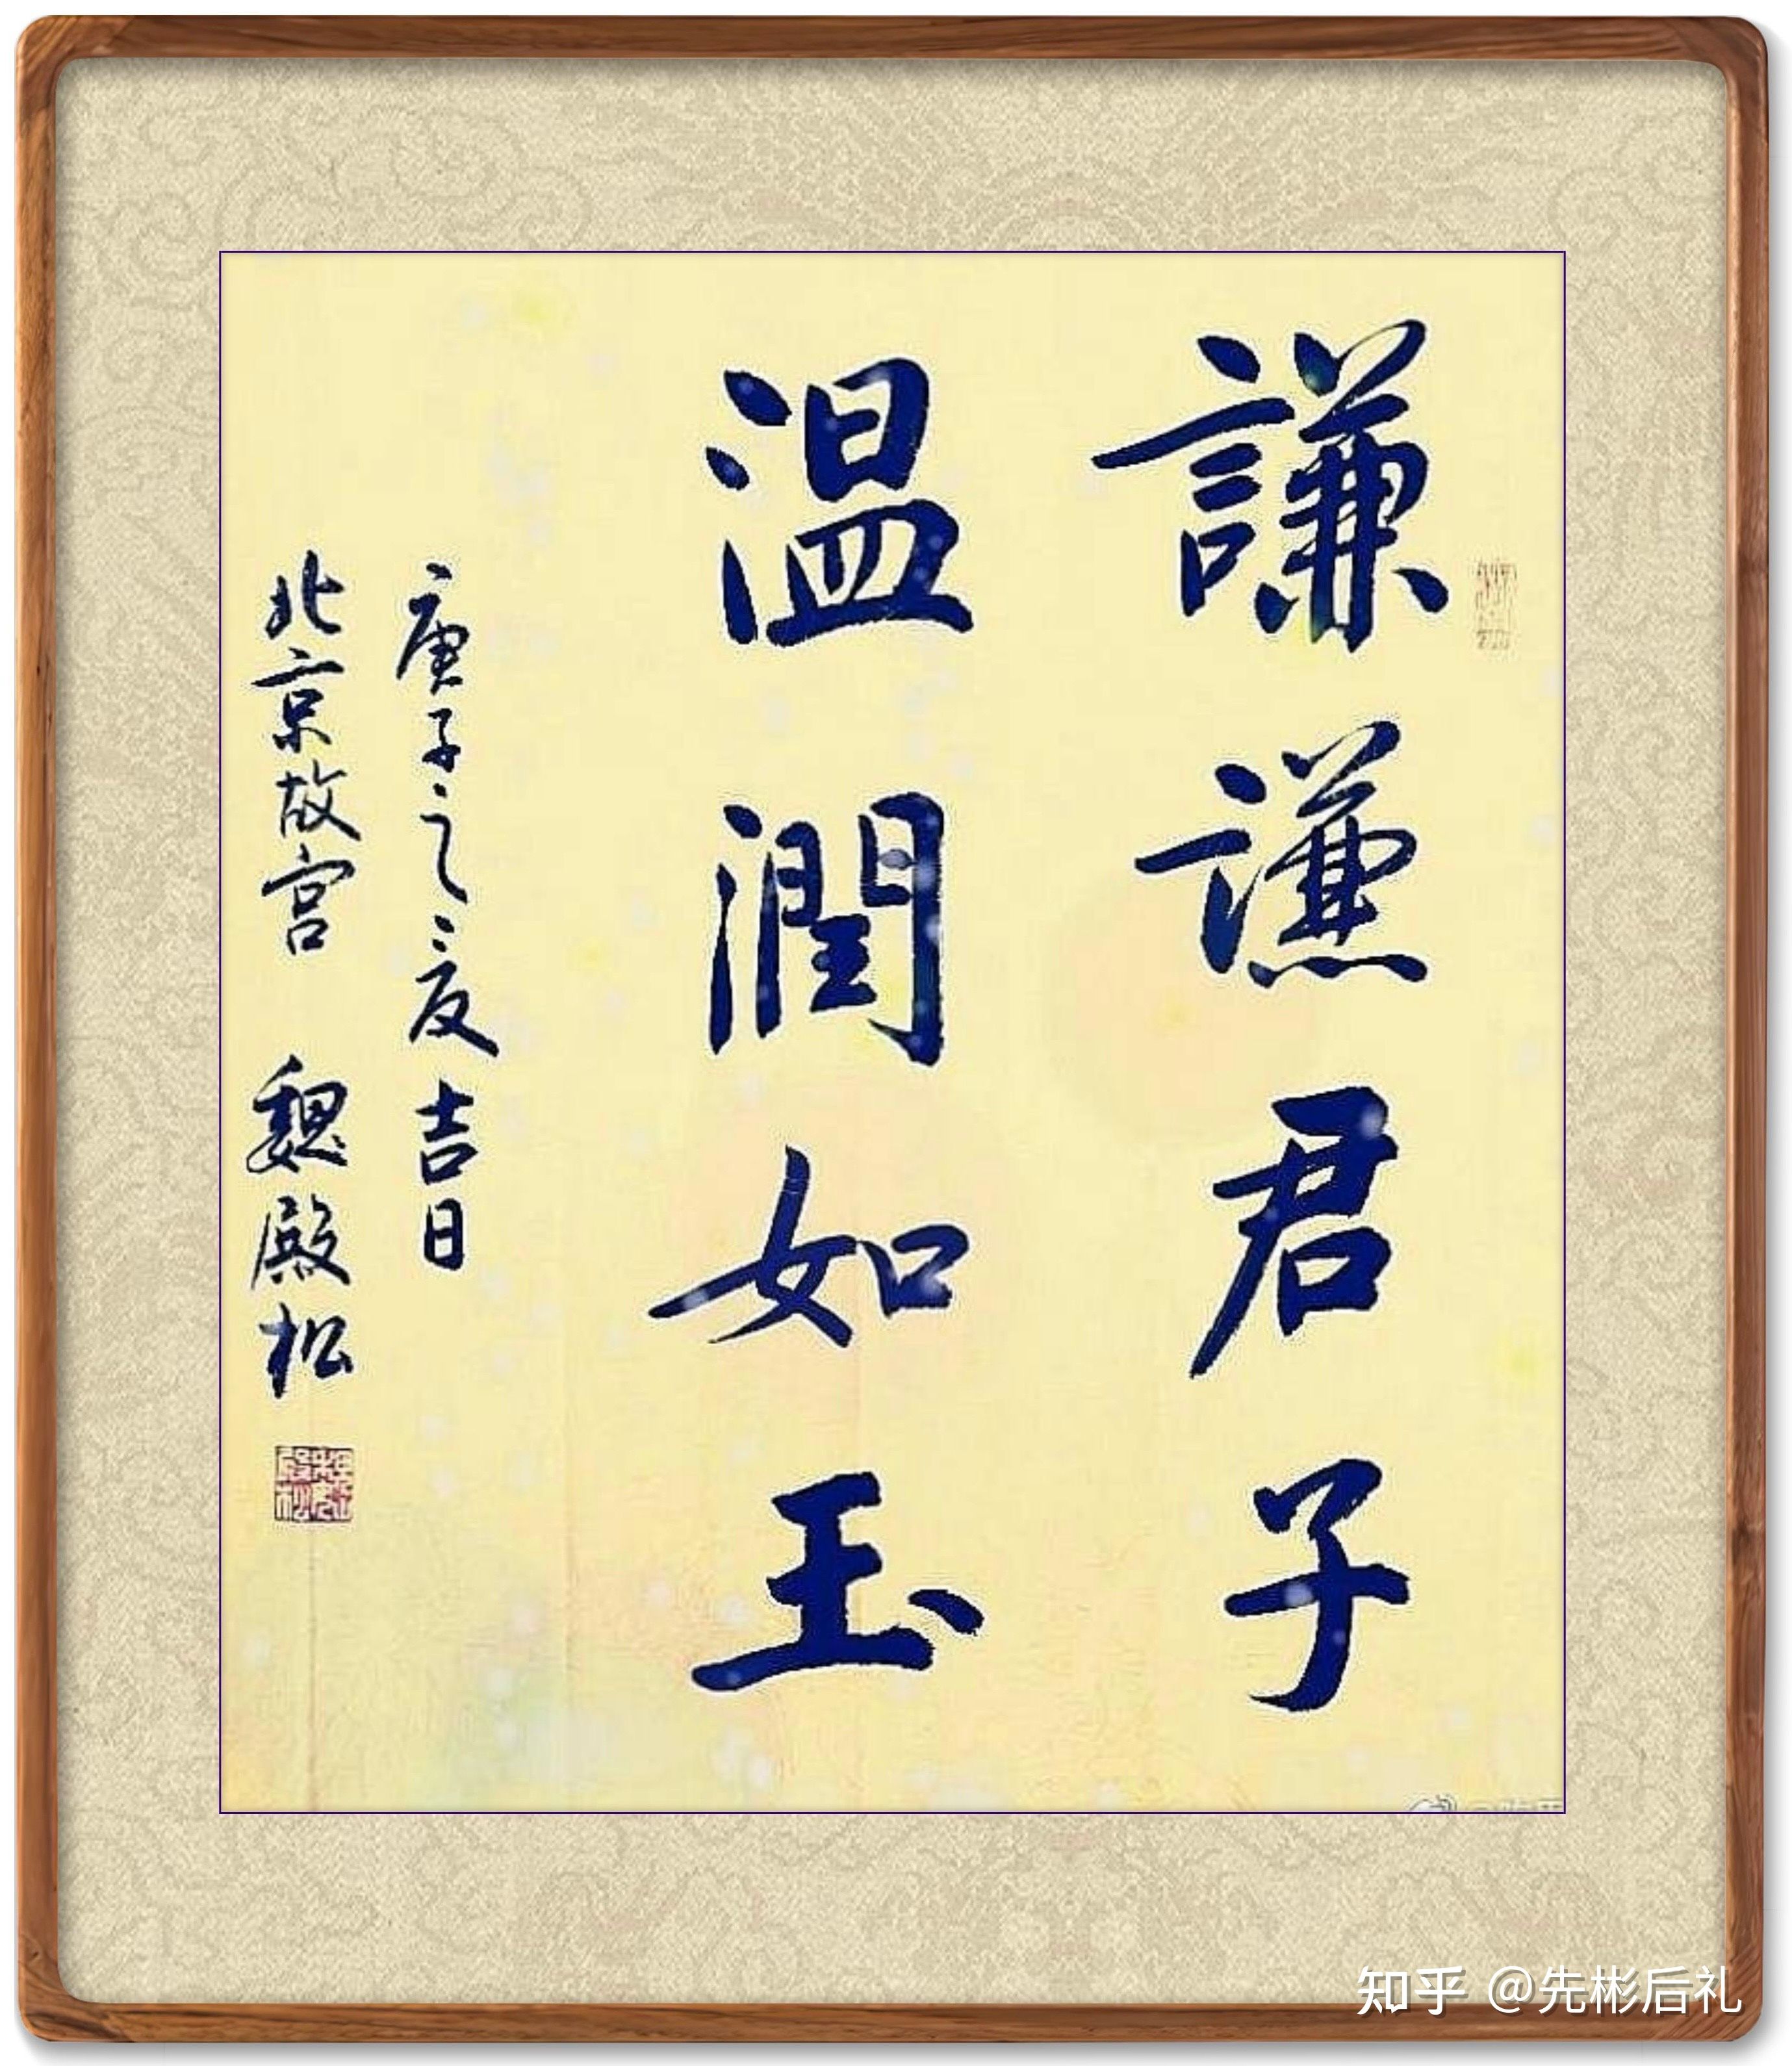 謙謙君子
温潤如玉
庚子之夏吉日
北京故宫 魏殿松
知乎 @先彬后礼